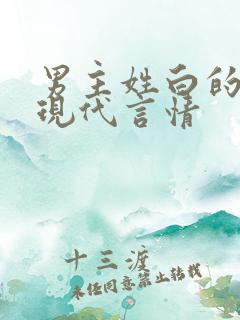 男主姓白的
現代言情
十三渡
未经同意禁止转载